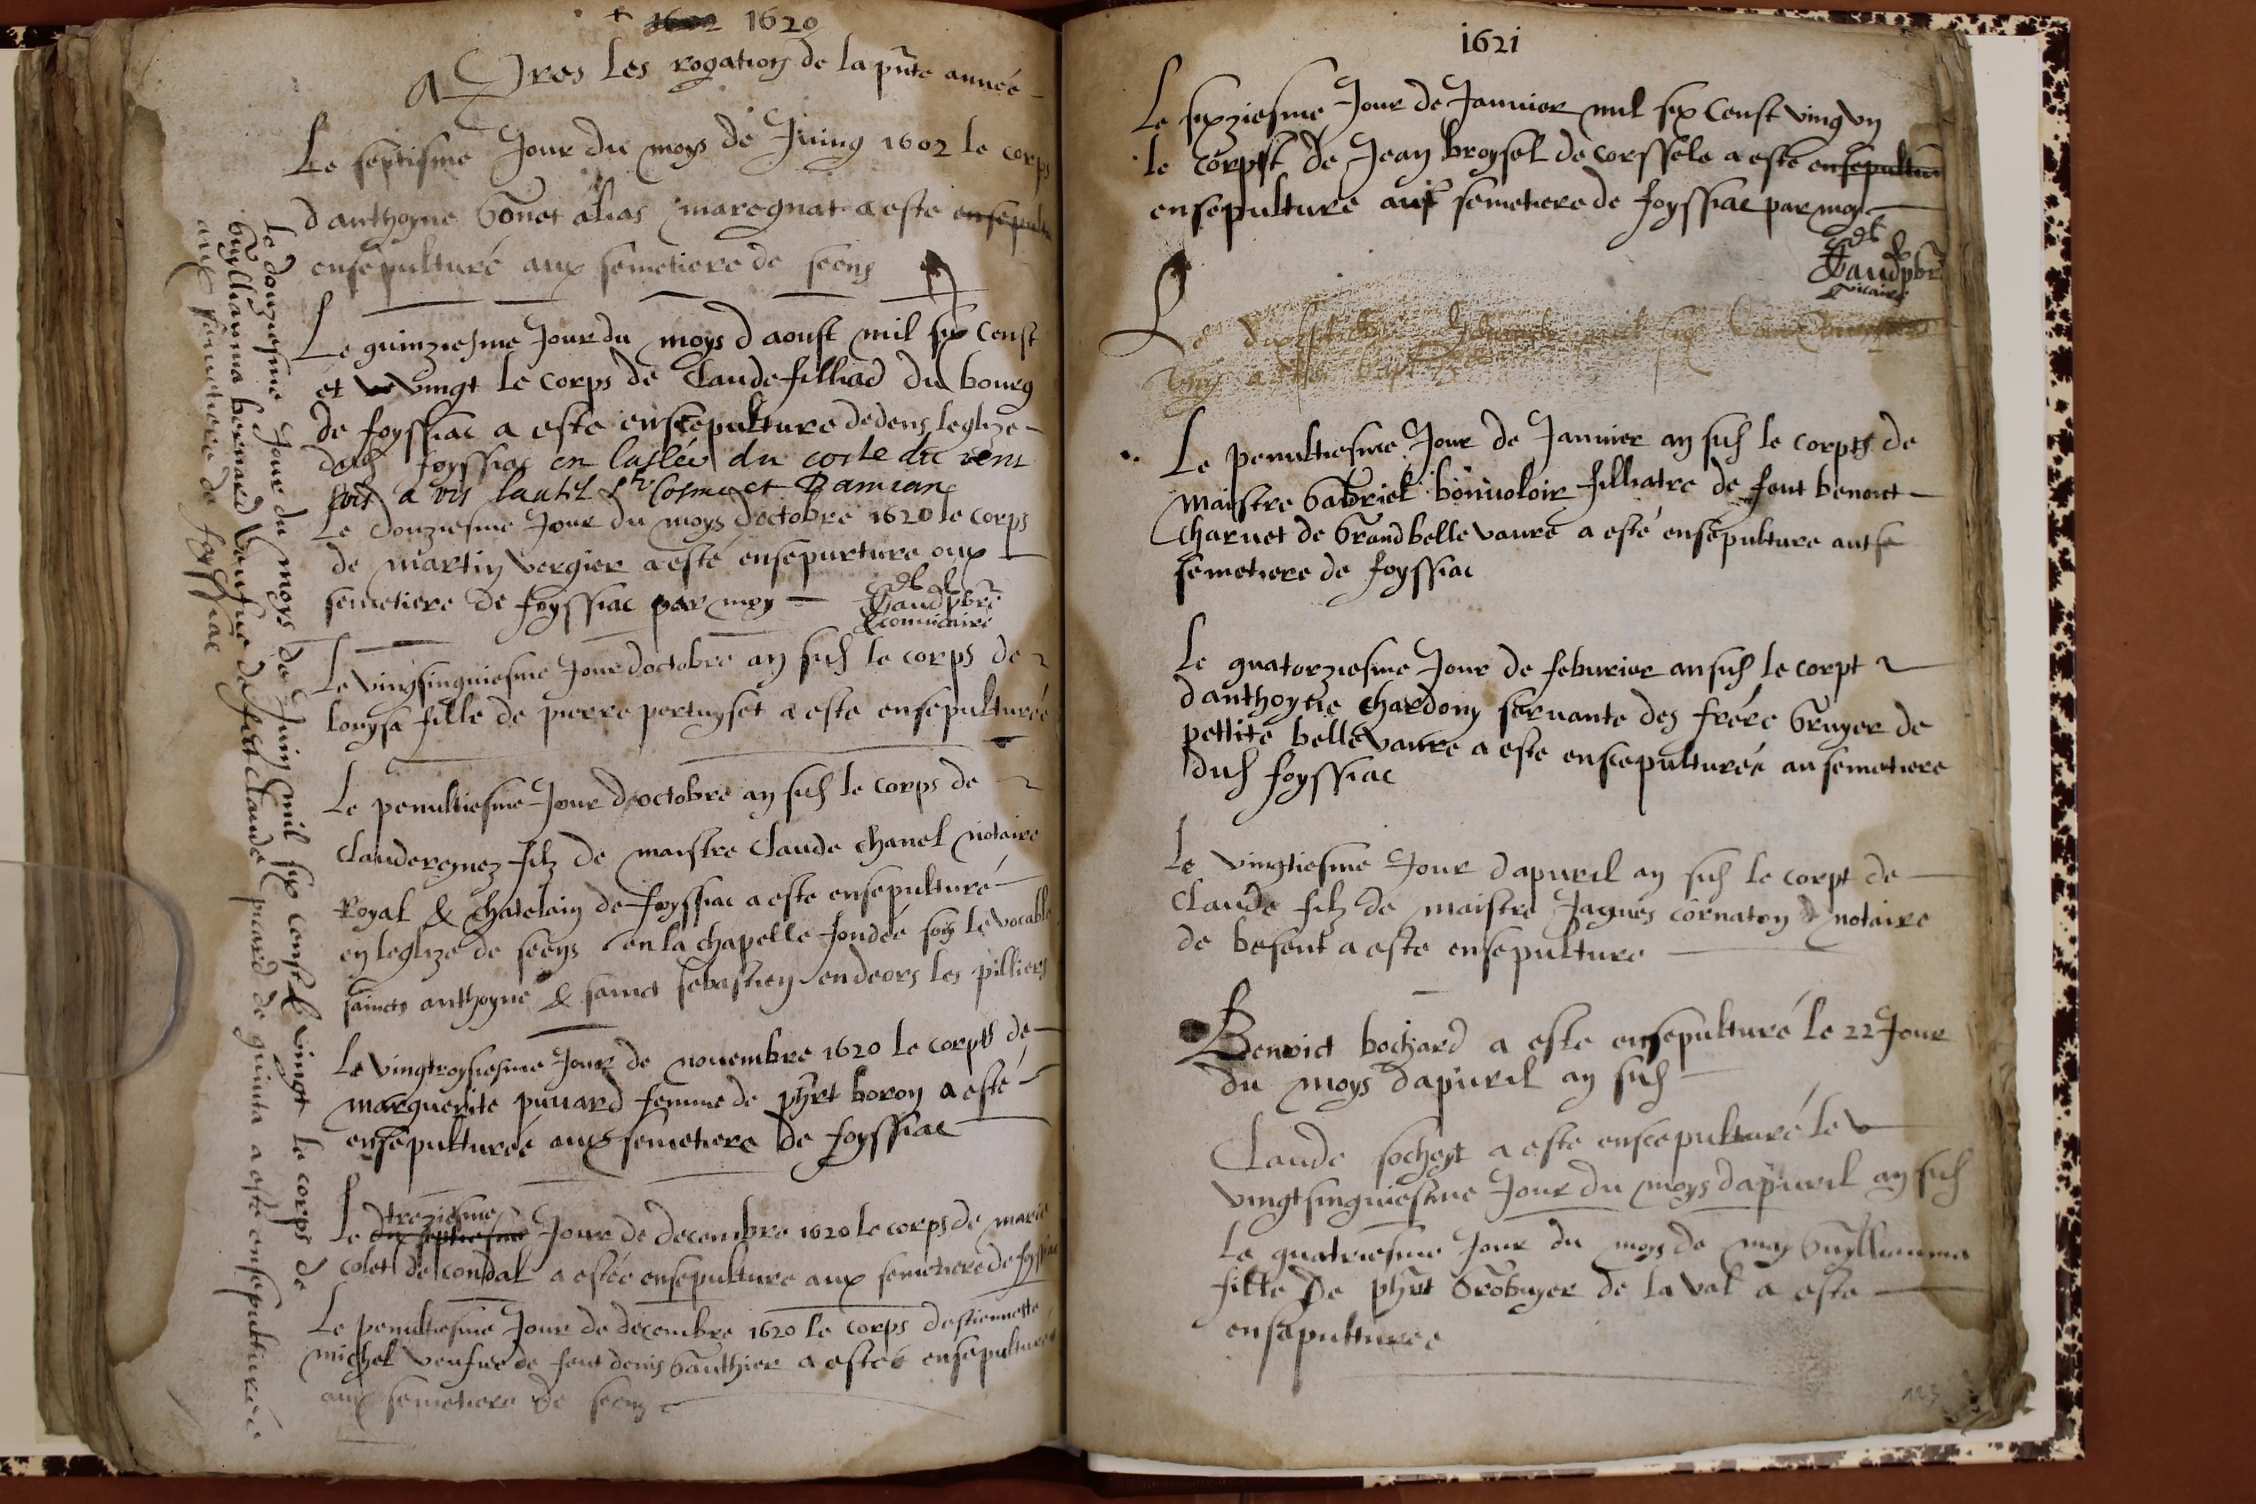 1620
Apres les rogations de la pnte année
Le septiesme Jour du moys de Juing 1602 le corps
danthoyne Bonet alias maregnat a este
ensepulturé aux semetiere de seens
Le quinziesme Jour du moys daoust mil six censt
et vingt le corps de Claude filliad du bourg
de foyssiac a este enscepulture dedens leglize
foyssiac en du coste du vent
a vis lautel Cosme et Damian
Le douziesme Jour du moys doctobre 1620 le corps
de martin vergier a esté ensepurture aux
semetiere de foyssiac par moy
Le vingsinquiesme Jour doctobre an sud le corps de
louyse fille de pierre pertuyset a este ensepulturée
Le penultiesme Jour doctobre an sud le corps de
clauderemez filz de maistre Claude Chanel notaire
Royal & Chatelain de foyssiac a este ensepulturé
en leglize de seens en la chapelle fondée soubz le vocable
saincts anthoyne & sainct sebastien endeors les pilliers
Le vingtroysiesme Jour de novembre 1620 le corpts de
marguerite puvard femme de phrt boron a esté
ensepulturée aux semetiere de foyssiac
treziesme
Le dix septiesme Jour de decembre 1620 le corps de marie
colet de condal a estée ensepulture aux semetiere de foyssiac
Le penultiesme Jour de decembre 1620 le corps destiennette
michel veufve de feut denis Gauthier a estée ensepulturée
aux semetiere de seens
le douziesme Jour du moys de Juin mil six censt & vingt le corps de
Guyllianma bernard veufve de feut claude picard de quinta a este ensepulturée
aux semetiere de foyssiac
1621
Le sixziesme Jour de Janvier mil six censt ving un
le corpst de Jean broysel de corssele a este ensepultur
ensepulture aux semetiere de foyssiac par moy
Le
Le penultiesme Jour de Janvier an sud le corpts de
maistre Gabriel bonvoloir filliatre de feut benoict
Charvet de Grand bellevavre a esté ensepulture aut
semetiere de foyssiac
Le quatorziesme Jour de feburier an sud le corpt
danthoyne chardony servante des frere Gruyer de
pettite bellevavre a este enscepulturée au semetiere
dud foyssiac
Le vingtiesme Jour dapvril an sud le corpt de
Claude filz de maistre Jaques cornaton notaire
de besent a este ensepulture
Benoict bochard a este ensepulturé le 22 Jour
du moys dapvril an sud
Claude socheyt a este enscepulturé le
vingtsinquiesme Jour du moys dapvril an sud
Le quatriesme Jour du moys de may Guyllianma
fille de phrt Grobuyer de la val a este
ensepulturée